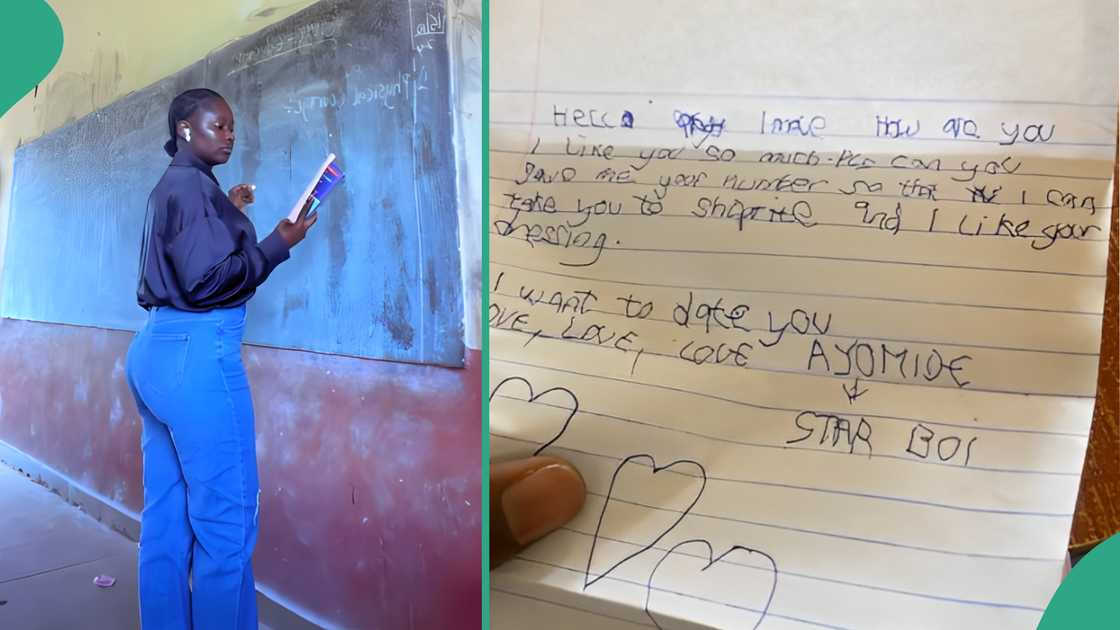 Physical
Hello How are you
I Like you so much. Pls can you
gave me your number so that I can
take you to shoprite and I Like your
dressing.
I want to date you
OVE, LOVE, LOVE AYOMIDE
STAR BOI